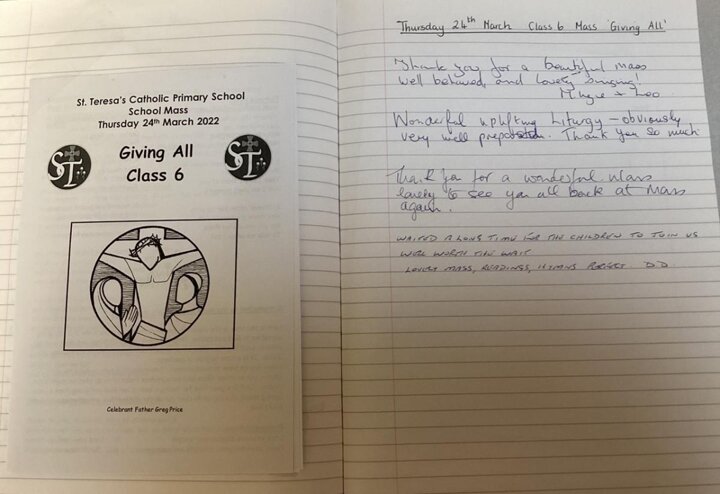 St. Teresa's Catholic Primary School
School Mass
Thursday 24th March 2022
Giving All
Class 6
ST
ST
Celebrant Father Greg Price
Thursday 24th March Class 6 Mass 'Giving All'
Thank you for a beautiful mass
well behaved, and lovely singing!
+ Leo
Wonderful uplifting Liturgy - obviously
very well prepared. Thank you so much
Thank you for a wonderful Mass
lovely to see you all back at Mass
again.
WAITED A LONG TIME FOR THE CHILDREN TO JOIN US
WELL WORTH THE WAIT
LOVELY MASS, READINGS, HYMNS PERFECT D.D.